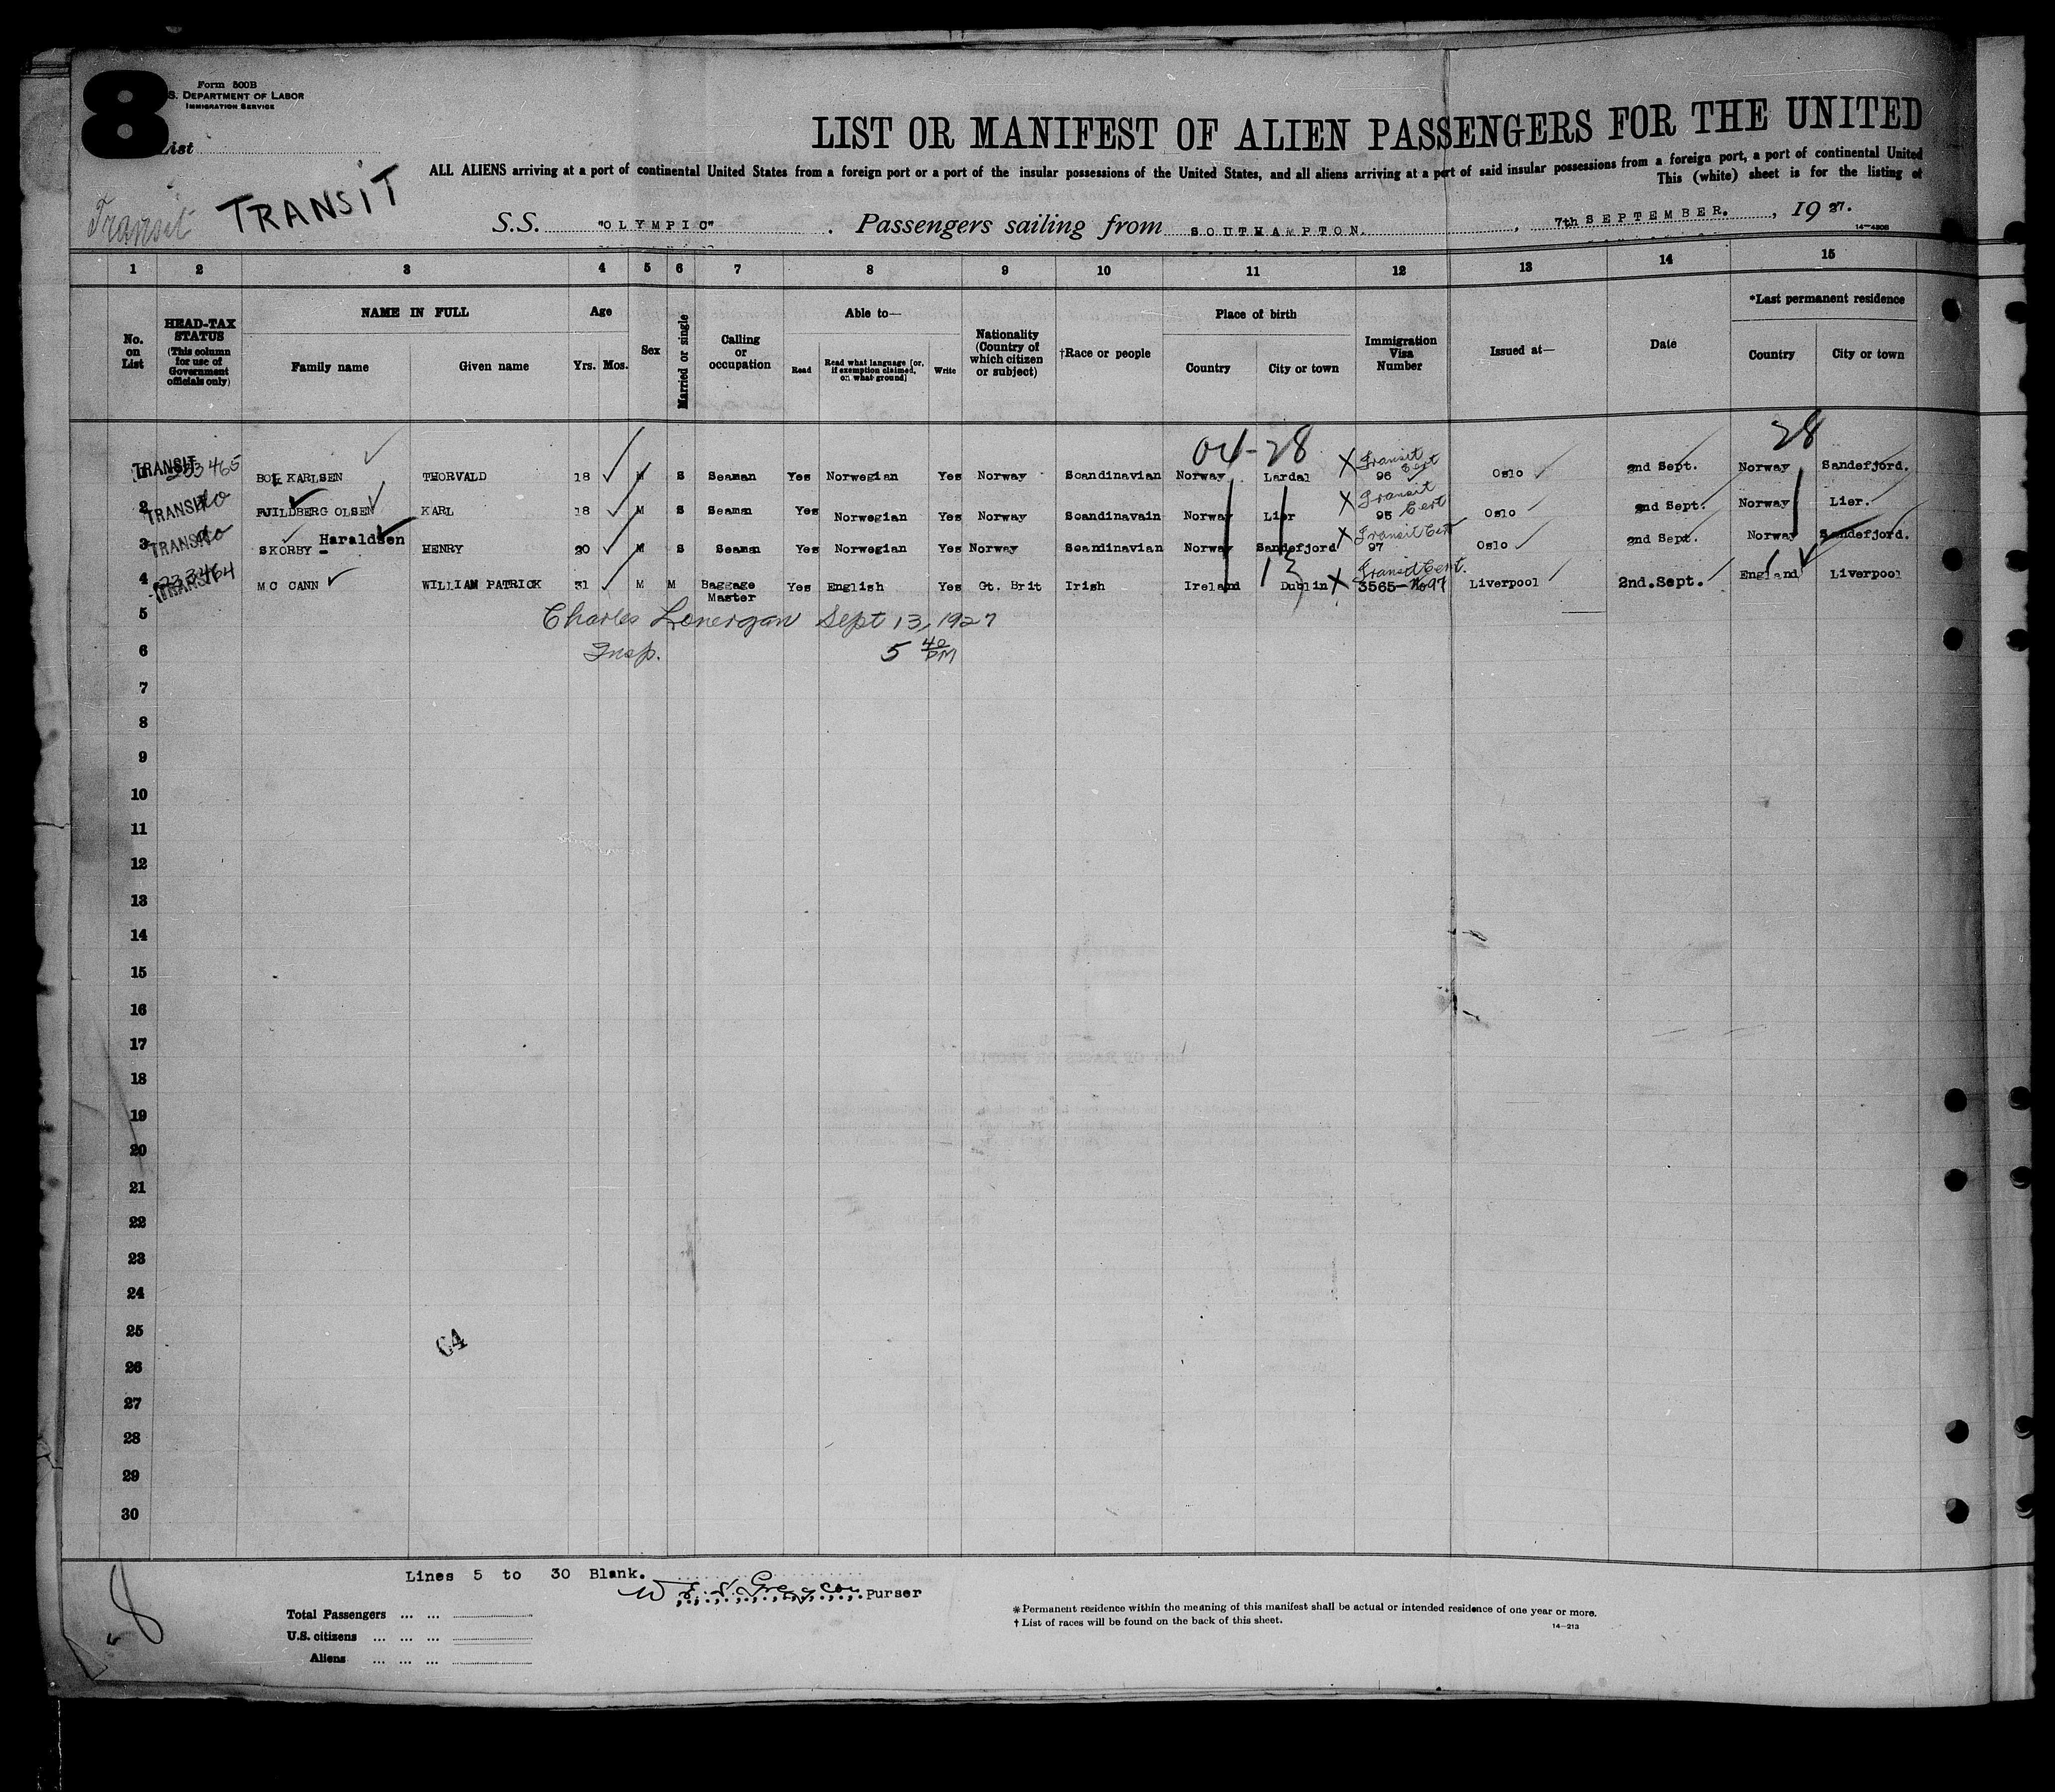 8
Form 500B
S. DEPARTMENT OF LABOR
IMMIGRATION SERVICE
List
LIST OR MANIFEST OF ALIEN PASSENGERS FOR THE UNITED
ALL ALIENS arriving at a port of continental United States from a foreign port or a port of the insular possessions of the United States, and all aliens arriving at a port of said insular possessions from a foreign port, a port of continental United
This (white) sheet is for the listing of
Transit TRANSIT
S.S. "OLYMPIC" . Passengers sailing from SOUTHAMPTON. , 7th SEPTEMBER. , 1927.
14—4208
1 2 3 4 5 6 7 8 9 10 11 12 13 14 15
No. on List
HEAD-TAX STATUS (This column for use of Government officials only)
NAME IN FULL
Family name Given name
Age
Yrs. Mos.
Sex
Married or single
Calling or occupation
Able to—
Read Read what language [or, if exemption claimed, on what ground] Write
Nationality (Country of which citizen or subject)
†Race or people
Place of birth
Country City or town
Immigration Visa Number
Issued at—
Date
*Last permanent residence
Country City or town
04-28 28
1 TRANSIT 233465 BOE KARLSEN THORVALD 18 M S Seaman Yes Norwegian Yes Norway Scandinavian Norway Lardal Transit Cert 96 Oslo 2nd Sept. Norway Sandefjord.
2 TRANSIT do OLSEN KARL 18 M S Seaman Yes Norwegian Yes Norway Scandinavain Norway Lier Transit Cert 95 Oslo 2nd Sept. Norway Lier.
3 TRANSIT do SKORBY - Haraldsen HENRY 20 M S Seaman Yes Norwegian Yes Norway Scandinavian Norway Sandefjord Transit Cert 97 Oslo 2nd Sept. Norway Sandefjord.
4 TRANSIT 233464 MC CANN WILLIAM PATRICK 31 M M Baggage Master Yes English Yes Gt. Brit Irish Ireland 13 Dublin Transit Cert. 3565-No97 Liverpool 2nd.Sept. England Liverpool
5 Charles Lonergan Sept 13, 1927
6 Insp. 5 40 PM
7
8
9
10
11
12
13
14
15
16
17
18
19
20
21
22
23
24
25
64
26
27
28
29
30
Lines 5 to 30 Blank.
Purser
8
Total Passengers ... ...
U.S. citizens ... ... ...
Aliens ... ... ...
* Permanent residence within the meaning of this manifest shall be actual or intended residence of one year or more.
† List of races will be found on the back of this sheet.
14—213